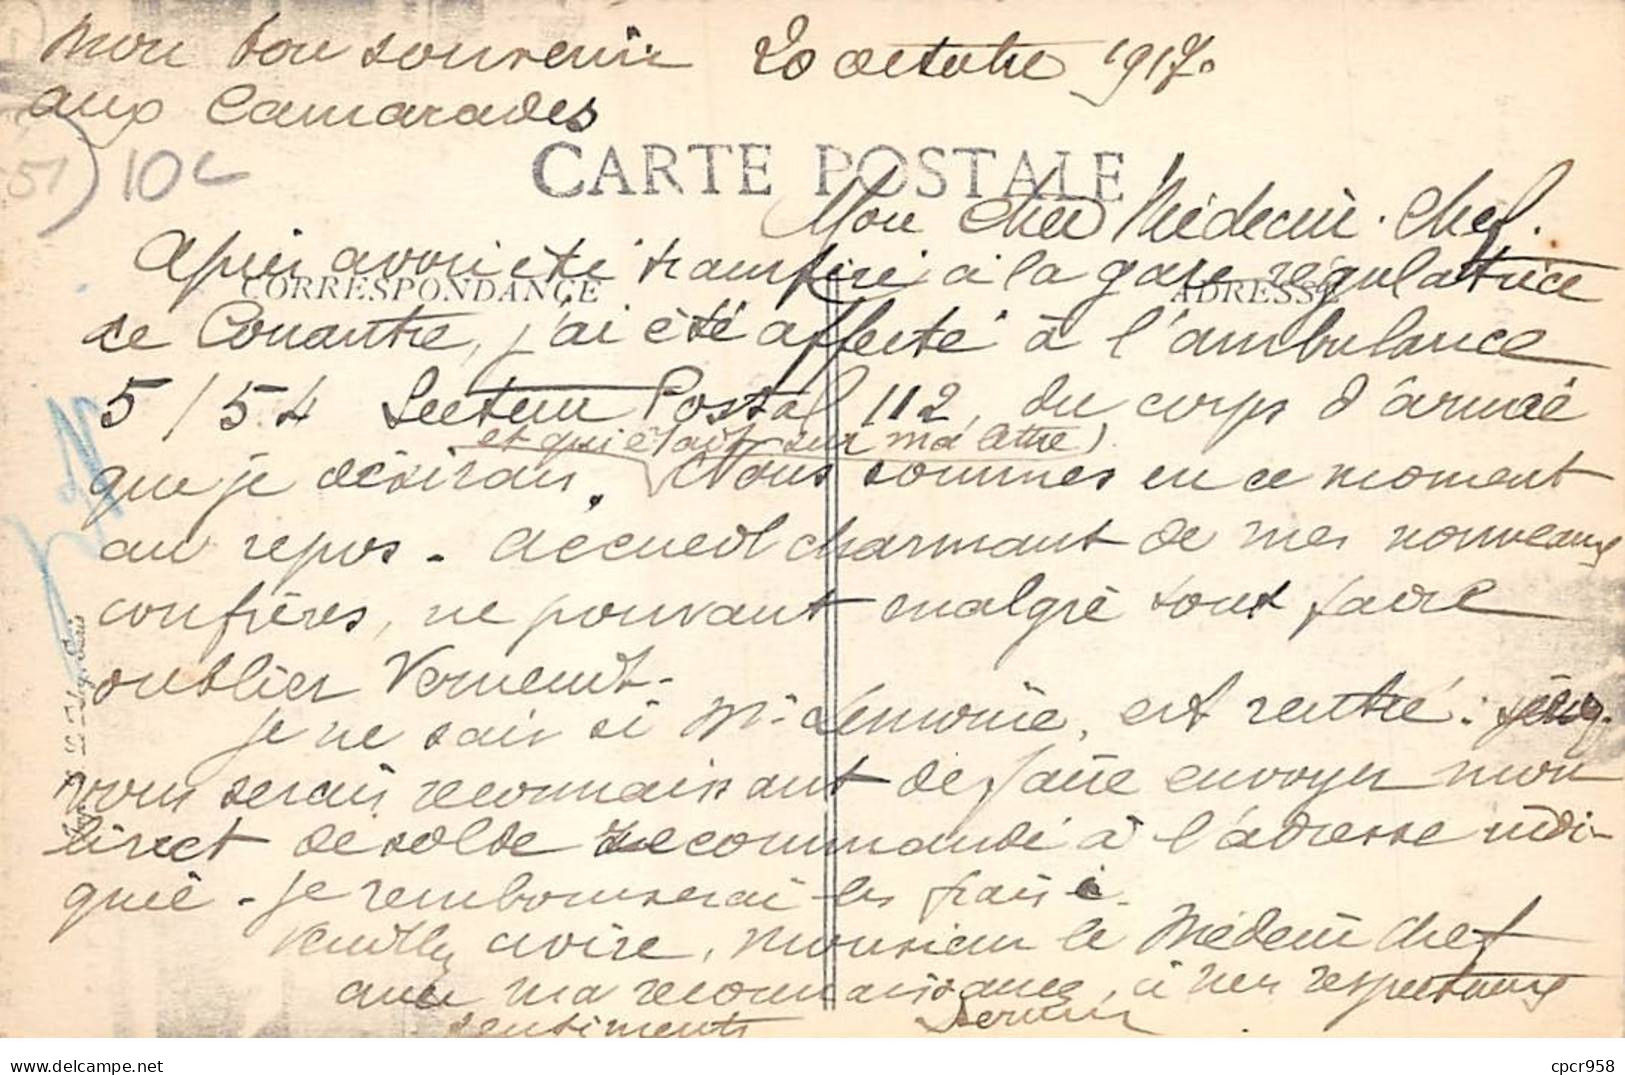 Mon bon souvenir 20 octobre 1917.
aux Camarades
51) 10
CARTE POSTALE
Mon cher Médecin. Chef.
Après avoir été transféré à la gare régulatrice
CORRESPONDANCE ADRESSE
de Conantre, j'ai été affecté à l'ambulance
5/54 Secteur Postal 112, du corps d'armée
et qui était sur ma lettre)
que je désirais. Nous sommes en ce moment
au repos - Accueil charmant de mes nouveaux
confrères, ne pouvant malgré tout faire
oublier Verneuil.
je ne sais si Mr Lemoine, est rentré. je
vous serais reconnaissant de faire envoyer mon
livret de solde recommandé à l'adresse indi-
quée - je rembourserai les frais.
Veuillez croire, Monsieur le Médecin Chef
avec ma reconnaissance, à mes respectueux
sentiments
cpcr958